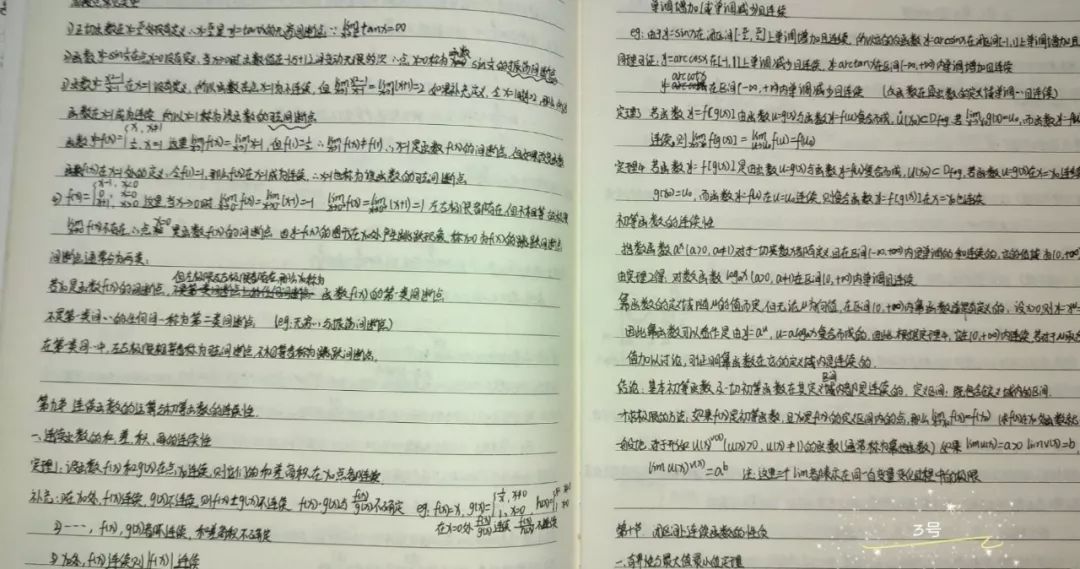 1) 正切函数在x=π/2处没有定义 ∴x=π/2是y=tanx的无穷间断点 ∵lim tanx=∞
2) 函数y=sin 在点x=0没有定义, 当x→0时函数值在-1与+1之间变动无限多次 ∴点x=0称为函数sin 的振荡间断点
3) 函数y= 在x=1没有定义, 所以函数在点x=1为不连续, 但lim =lim(x+1)=2, 如果补充定义, 令x=1时y=2, 那么
函数在x=1成为连续 所以x=1称为该函数的可去间断点
函数y=f(x)={x, x≠1
1/2, x=1 这里lim f(x)=lim x=1, 但f(1)=1/2 ∴lim f(x)≠f(1), ∴x=1是函数f(x)的间断点, 但如果改变函数
函数f(x)在x=1处的定义, 令f(1)=1, 那么f(x)在x=1成为连续 ∴x=1也称为该函数的可去间断点
5) f(x)={x-1, x<0
0, x=0
x+1, x>0 这里当x→0时 lim f(x)=lim(x-1)=-1 lim f(x)=lim(x+1)=1 左右极限都存在, 但不相等
lim f(x)不存在 ∴点x=0是函数f(x)的间断点 由y=f(x)的图形在x=0处产生跳跃现象, 称x=0为f(x)的跳跃间断点
间断点通常分为两类:
若x0是函数f(x)的间断点, 但左极限及右极限都存在, 那么x0称为函数f(x)的第一类间断点
不是第一类间…的任何间…称为第二类间断点 (eg: 无穷…与振荡间断点)
在第一类间…中, 左右极限相等者称为可去间断点, 不相等者称为跳跃间断点.
第九节 连续函数的运算与初等函数的连续性
一、连续函数的和、差、积、商的连续性
定理1: 设函数f(x)和g(x)在点x0连续, 则它们的和差商积在x0点都连续
补充: 1) 在x0处, f(x)连续, g(x)不连续, 则f(x)±g(x)不连续 f(x)·g(x)与f(x)/g(x)不确定 eg. f(x)=x, g(x)=
在x=0处
2) ----, f(x), g(x)都不连续, 和差商积不确定
3) x0处, f(x)连续 则|f(x)|连续
单调增加(或单调减少)且连续
eg: 由于y=sinx在闭区间[-π/2, π/2]上单调增加且连续, 所以它的反函数y=arcsinx在闭区间[-1,1]上单调增加且
同理可证: y=arccosx在[-1,1]上单调减少且连续, y=arctanx在区间(-∞,+∞)内单调增加且连续
y=arccotx在区间(-∞,+∞)内单调减少且连续 (反函数在其函数的定义域单调…且连续)
定理3 若函数y=f[g(x)]由函数u=g(x)与函数y=f(u)复合而成, Ů(x0)⊂Dfog, 若lim g(x)=u0, 而函数y=f(u)
连续, 则lim f[g(x)]=lim f(u)=f(u0)
定理4 若函数y=f[g(x)]是由函数u=g(x)与函数y=f(u)复合而成, U(x0)⊂Dfog, 若函数u=g(x)在x=x0连续
g(x0)=u0, 而函数y=f(u)在u=u0连续, 则复合函数y=f[g(x)]在x=x0也连续
初等函数的连续性
指数函数a^x(a>0, a≠1)对于一切实数x都有定义, 且在区间(-∞,+∞)内是单调的和连续的, 它的值域为(0,+∞)
由定理2得, 对数函数logax(a>0, a≠1)在区间(0,+∞)内单调且连续
幂函数的定义域随μ的值而变, 但无论μ为何值, 在区间(0,+∞)内幂函数总是有定义的, 设x>0, 则y=x^μ=
因此幂函数可以看作是由y=a^u, u=μlogax复合而成的, 由此, 根据定理4, 它在(0,+∞)内连续, 若对于μ取
值加以讨论, 可证明幂函数在它的定义域内是连续的.
结论: 基本初等函数 及一切初等函数在其定义区间内都是连续的. 定义区间: 既包含在定义域内的区间
求极限的方法, 如果f(x)是初等函数, 且x0是f(x)的定义区间内的点, 那么lim f(x)=f(x0)
一般地, 对于形如u(x)^v(x) (u(x)>0, u(x)≢1)的函数(通常称为幂指函数) 如果 lim u(x)=a>0 lim v(x)=b
lim u(x)^v(x)=a^b 注: 这里三个lim都表示在同一自变量变化过程中的极限
第十节 闭区间上连续函数的性质
一、有界性与最大值最小值定理
3号